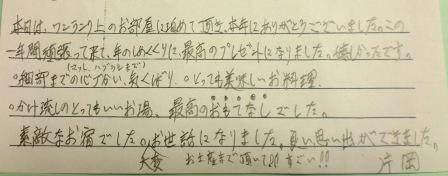 本日は、ワンランク上のお部屋に泊めて頂き、本当にありがとうございました。この
一年間頑張って来て、年のしめくくりに、最高のプレゼントになりました。嬉しかったです。
(マット、ハブラシまで)
○細部までの心づかい、気くばり。○とっても美味しいお料理
○かけ流しのとってもいいお湯、最高のおもてなしでした。
素敵なお宿でした。お世話になりました。良い思い出ができました。
大変 お土産まで頂いて すごい!! 片岡